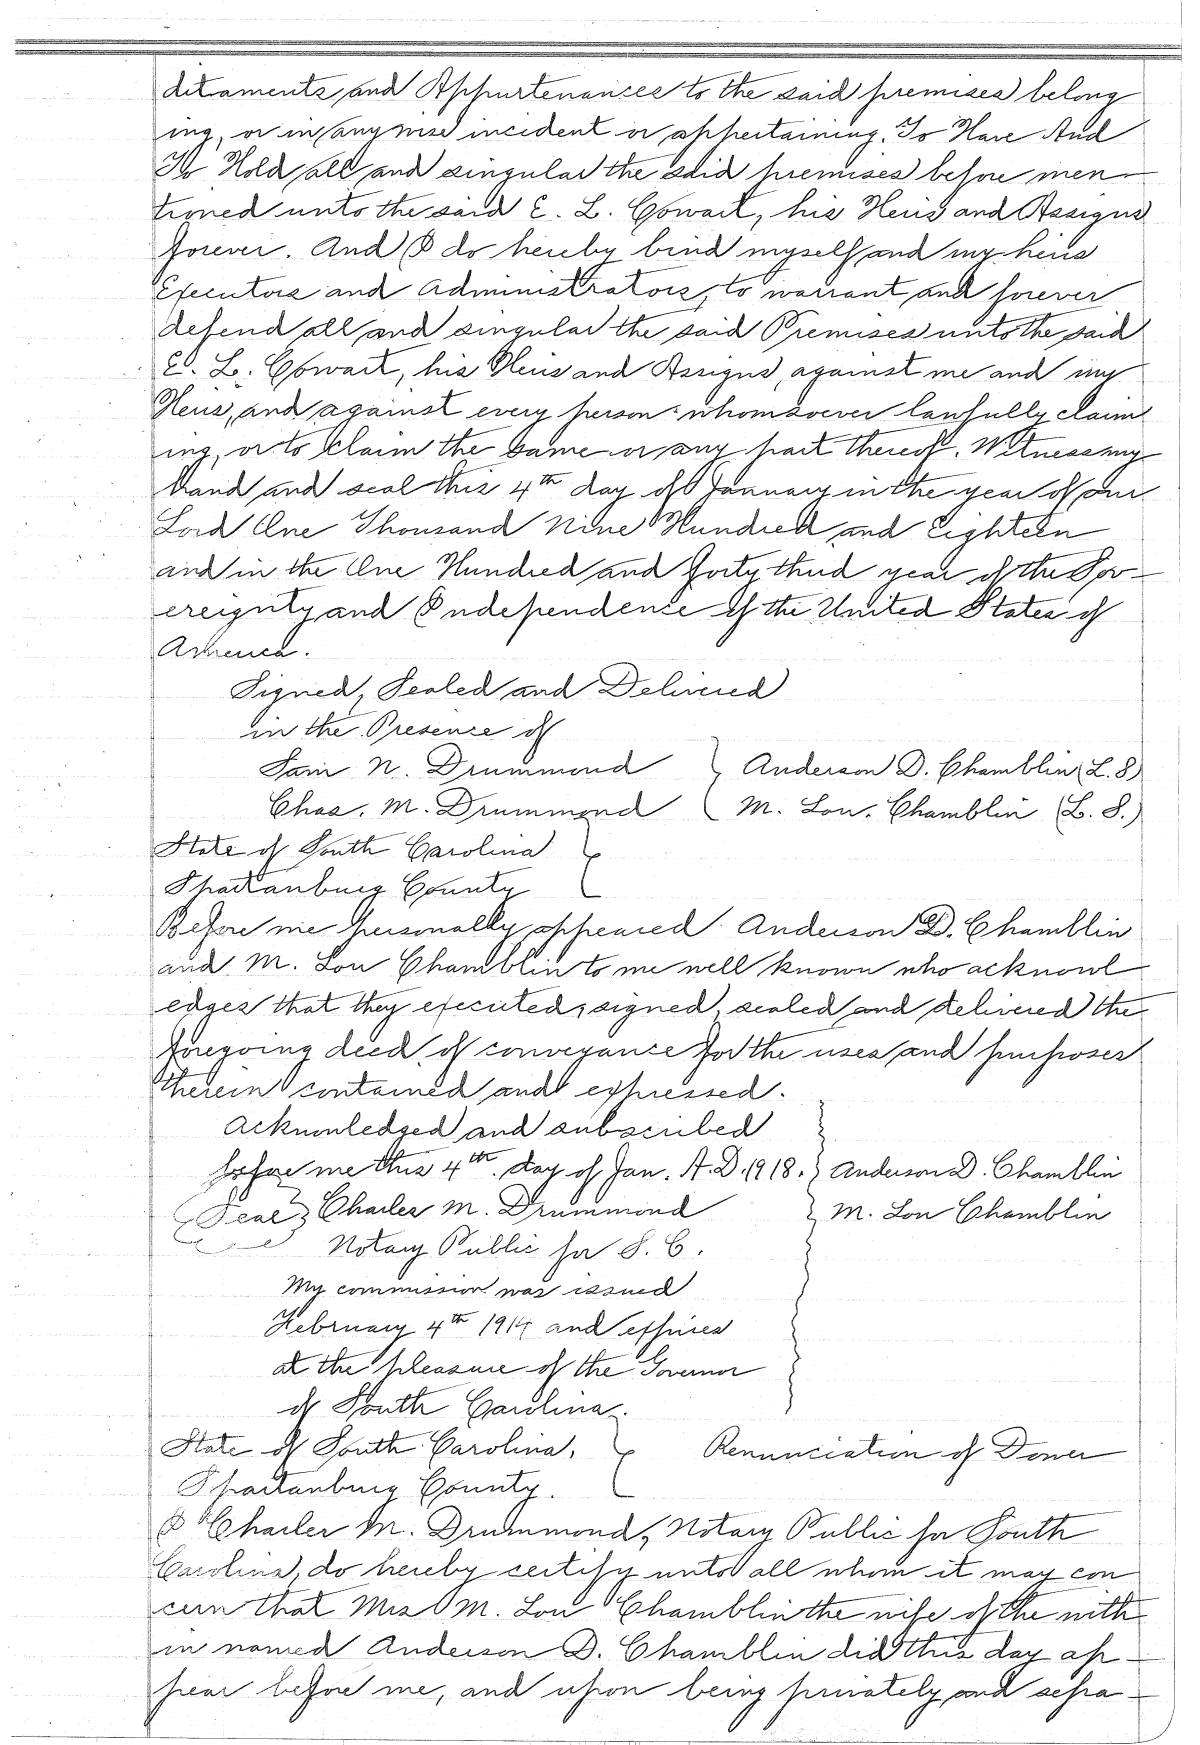 ditaments and Appurtenances to the said premises belong
ing, or in anywise incident or appertaining. To Have And
To Hold all and singular the said premises before men-
tioned unto the said E. L. Cowart, his Heirs and Assigns
forever. And I do hereby bind myself and my heirs
Executors and Administrators, to warrant and forever
defend all and singular the said Premises unto the said
E. L. Cowart, his Heirs and Assigns, against me and my
Heirs, and against every person whomsoever lawfully claim
ing, or to claim the same or any part thereof. Witness my
hand and seal this 4th day of January in the year of our
Lord One Thousand Nine Hundred and Eighteen
and in the One Hundred and forty third year of the Sov-
ereignty and Independence of the United States of
America.
Signed, Sealed and Delivered
in the Presence of
Sam N. Drummond } Anderson D. Chamblin (L. S)
Chas. M. Drummond ( M. Lou. Chamblin (L. S.)
State of South Carolina }
Spartanburg County
Before me personally appeared Anderson D. Chamblin
and M. Lou Chamblin to me well known who acknowl
edges that they executed, signed, sealed and delivered the
foregoing deed of conveyance for the uses and purposes
therein contained and expressed.
Acknowledged and subscribed
before me this 4th. day of Jan. A. D. 1918. } Anderson D. Chamblin
(Seal) Charles M. Drummond } M. Lou Chamblin
Notary Public for S. C.
My commission was issued
February 4th 1914 and expires
at the pleasure of the Governor
of South Carolina.
State of South Carolina, } Renunciation of Dower
Spartanburg County.
I Charles M. Drummond, Notary Public for South
Carolina, do hereby certify unto all whom it may con
cern that Mrs M. Lou Chamblin the wife of the with
in named Anderson D. Chamblin did this day ap-
pear before me, and upon being privately and sepa-